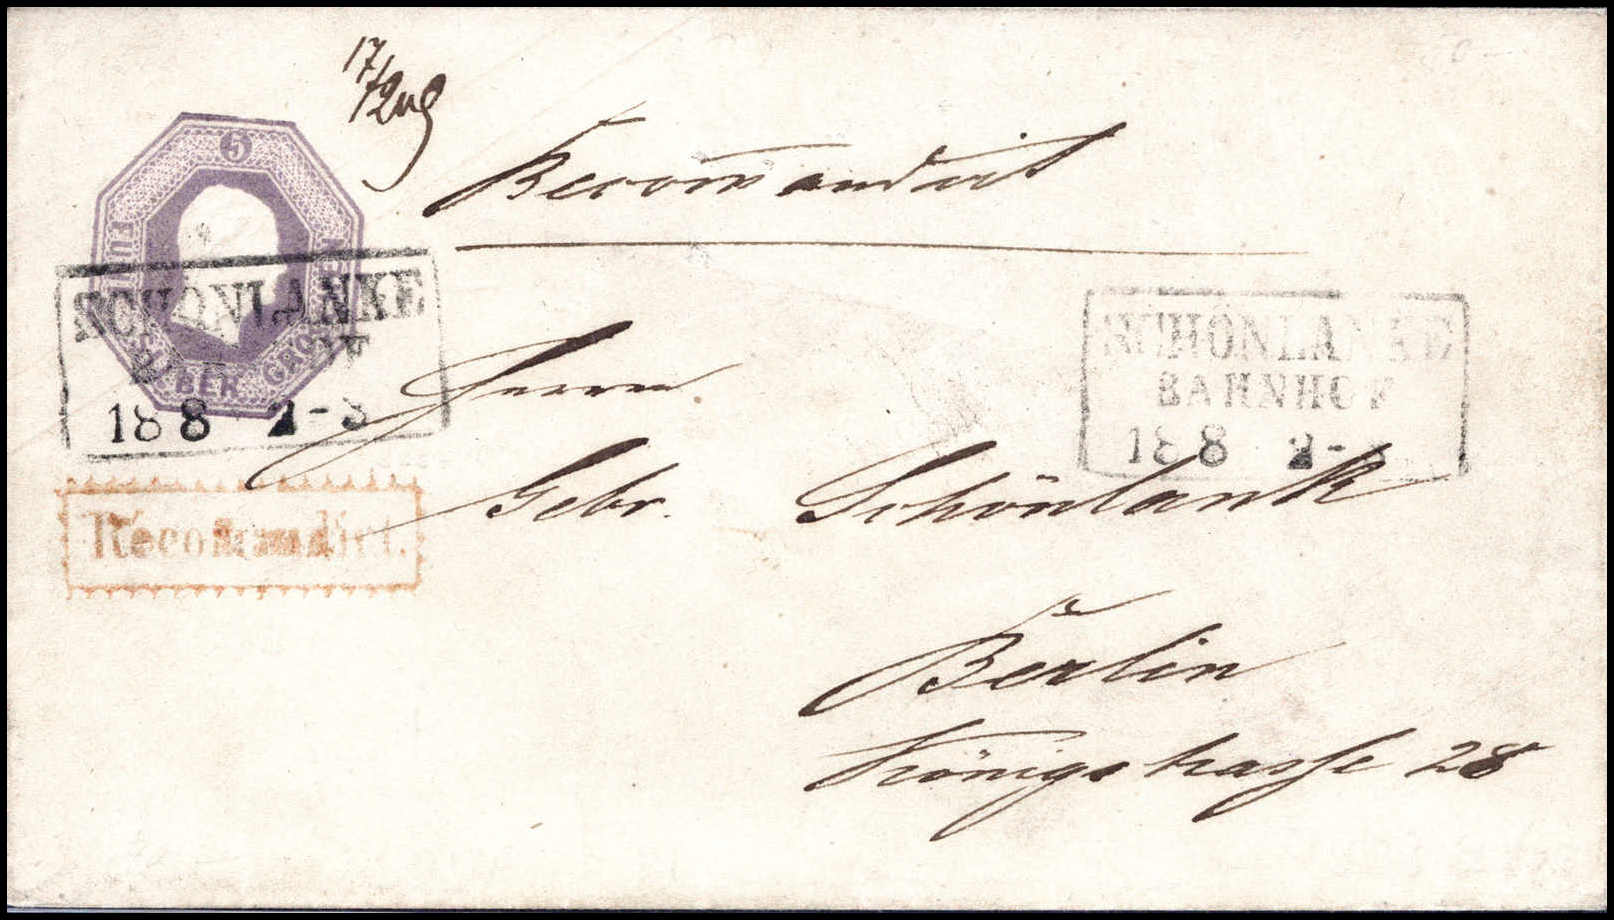 17/Aug
Recommandirt
5
FÜNF SILBER GROSCHEN
SCHÖNLANKE
18 8 2-3
Recomandirt.
SCHÖNLANKE
BAHNHOF
18 8 2-3
Herrn
Gebr. Schönlank
Berlin
Königstrasse 28